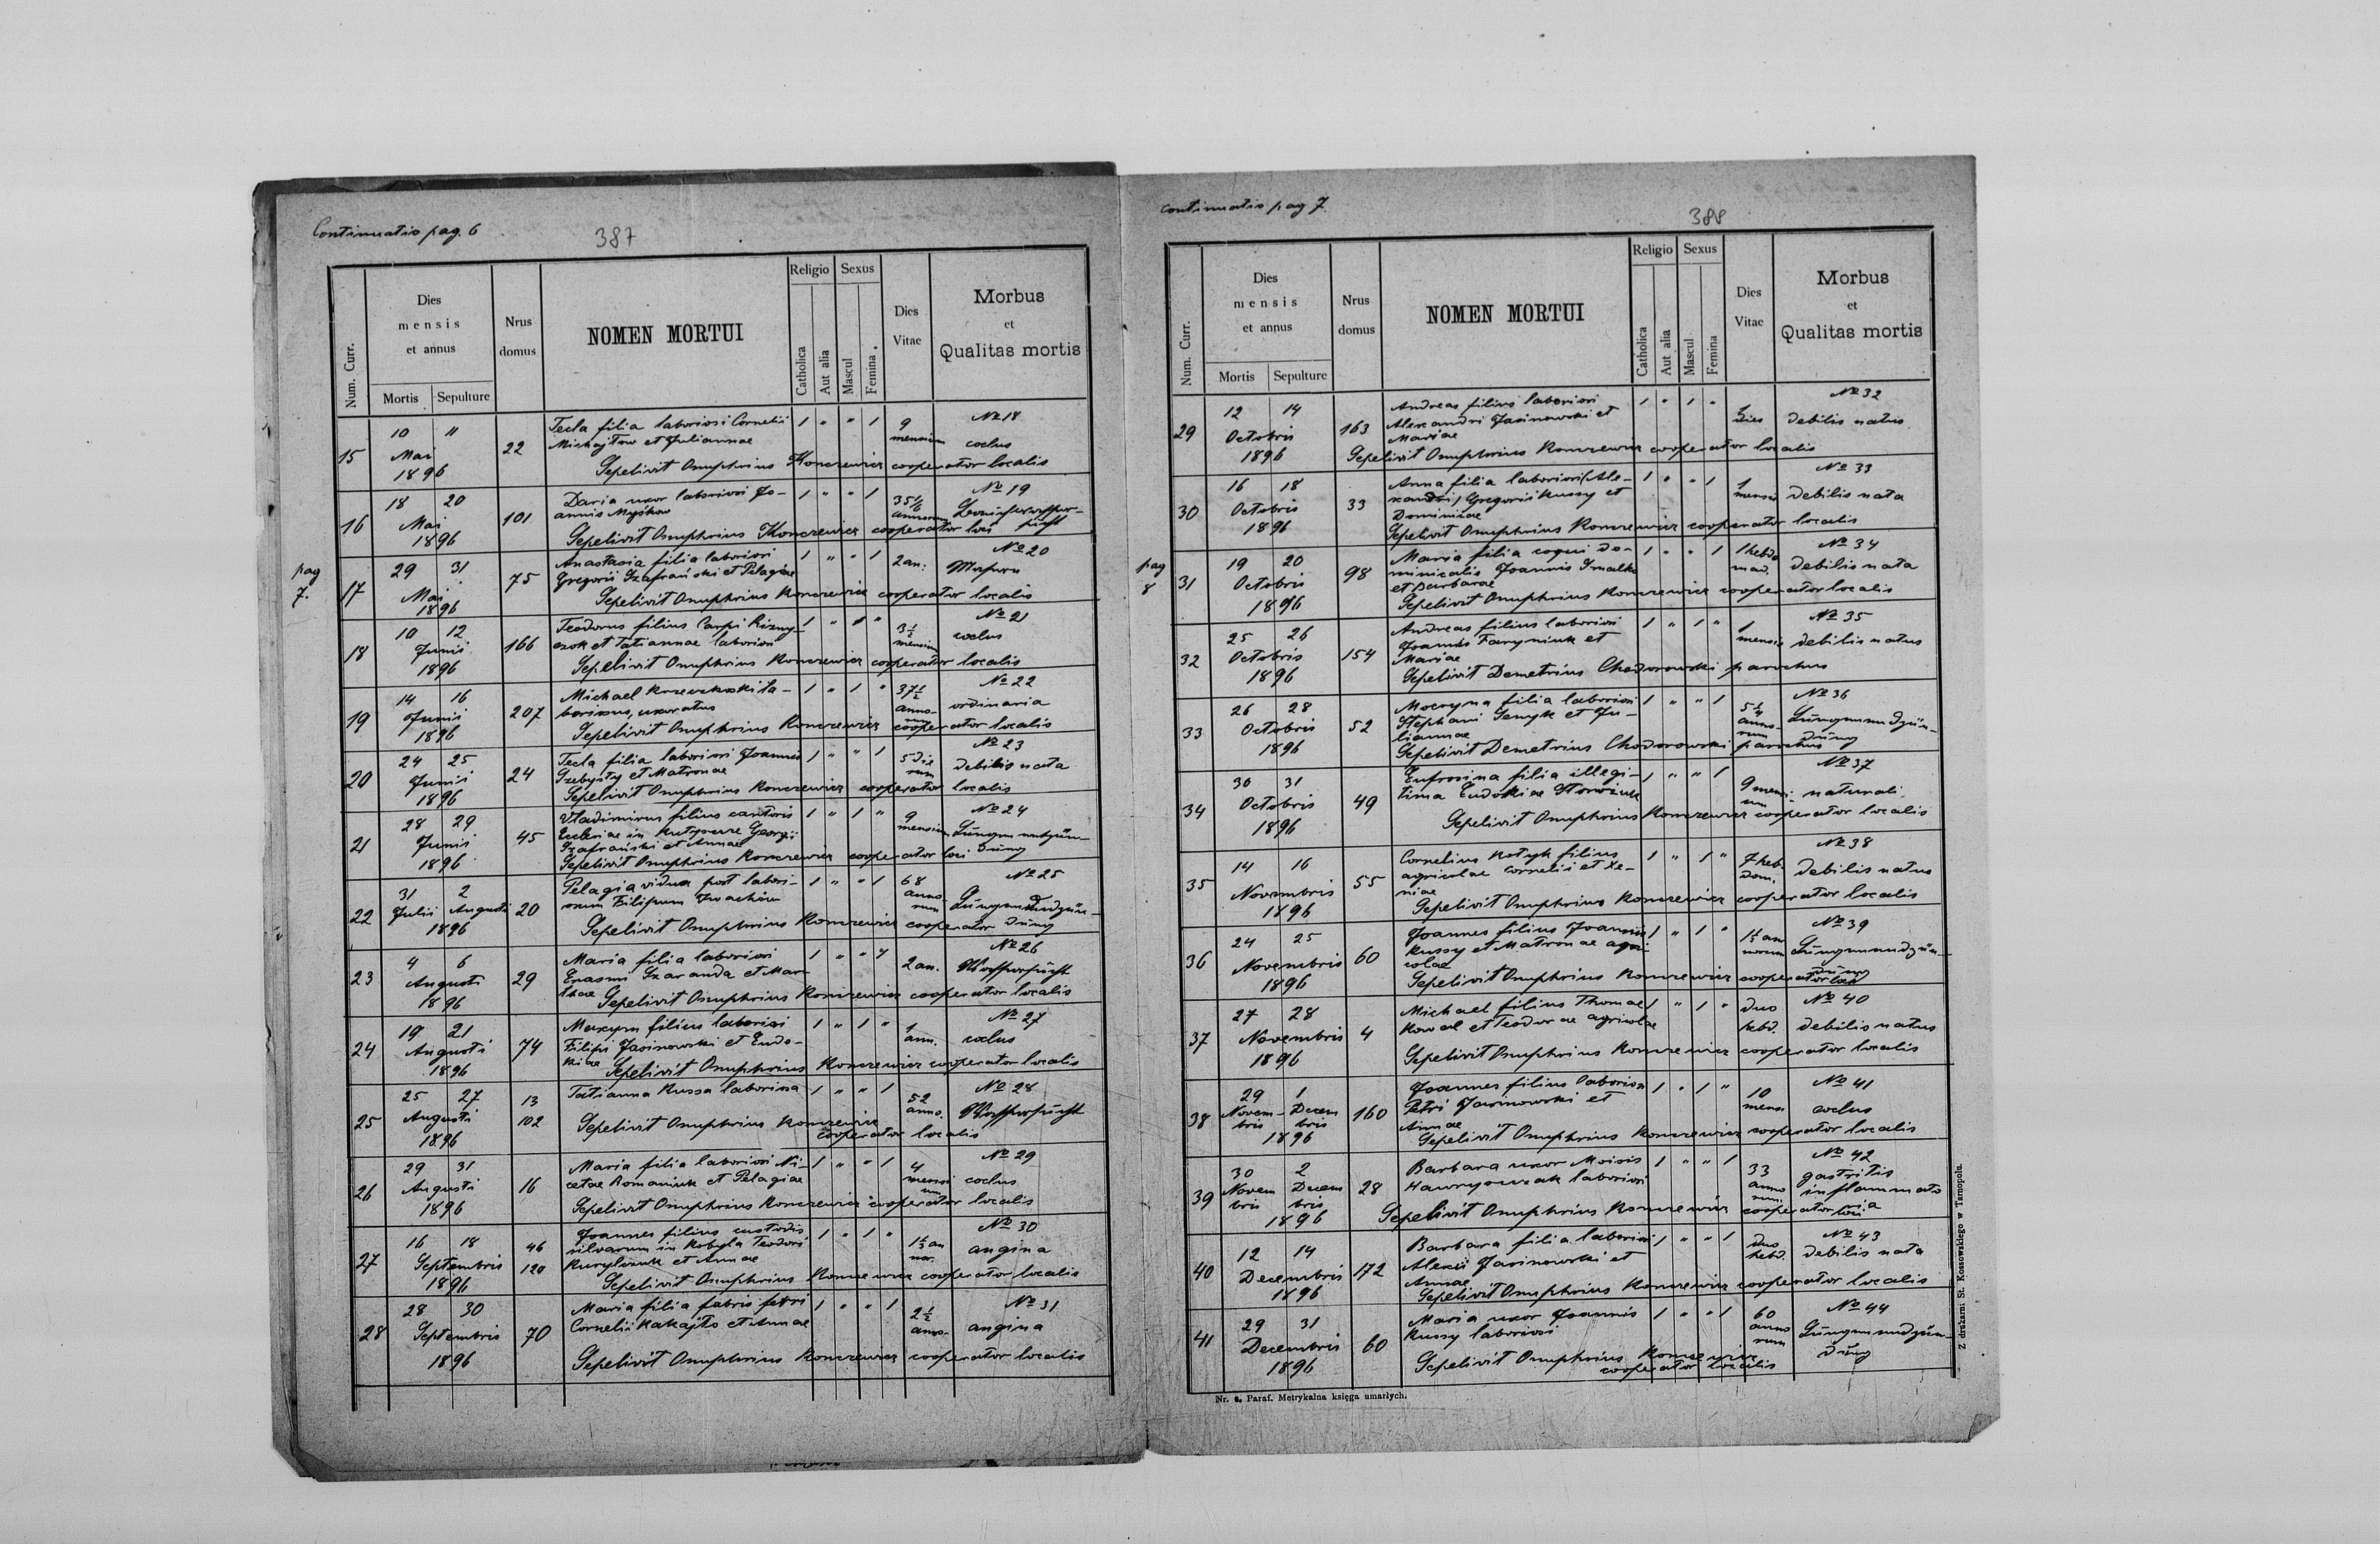 Continuatio pag. 6
387
Num. Curr.
Dies mensis et annus
Mortis Sepulture
Nrus domus
NOMEN MORTUI
Religio
Catholica
Aut alia
Sexus
Mascul
Femina
Dies Vitae
Morbus et Qualitas mortis
15 10 " Mai 1896 22 Tecla filia laboriosi Cornelii 1 " " 1 9 mensium № 18
Michajłow et Juliannae coclus
Sepelivit Onuphrius Konczewicz cooperator localis
16 18 20 Mai 1896 101 Daria uxor laboriosi Jo- 1 " " 1 annorum № 19
annis Myśkow
Sepelivit Onuphrius Konczewicz cooperator loci
pag 7.
17 29 31 Mai 1896 75 Anastasia filia laboriosi 1 " " 1 2 an: № 20
Gregorii Szafrański et Pelagiae Masern
Sepelivit Onuphrius Konczewicz cooperator localis
18 10 12 Junii 1896 166 Teodorus filius Carpi 1 " 1 " 3½ mensium № 21
et Tatiannae laboriosi coclus
Sepelivit Onuphrius Konczewicz cooperator localis
19 14 16 Junii 1896 207 Michael la- 1 " 1 " 37½ annorum № 22
boriosus, uxoratus ordinaria
Sepelivit Onuphrius Konczewicz cooperator localis
20 24 25 Junii 1896 24 Tecla filia laboriosi Joannis 1 " " 1 5 dierum № 23
et Matronae debilis nata
Sepelivit Onuphrius Konczewicz cooperator localis
21 28 29 Junii 1896 45 Vladimirus filius cantoris 1 " 1 " 9 mensium № 24
Ecclesiae in Georgii Lungenentzün-
Szafrański et Annae dung
Sepelivit Onuphrius Konczewicz cooperator loci
22 31 Julii 2 Augusti 1896 20 Pelagia vidua post labori- 1 " " 1 68 annorum № 25
osum Filipum Iwachów Lungenentzün-
Sepelivit Onuphrius Konczewicz cooperator dung
23 4 6 Augusti 1896 29 Maria filia laboriosi 1 " " 1 2 an. № 26
Erasmi Szaranda et Mar- Wassersucht
thae Sepelivit Onuphrius Konczewicz cooperator localis
24 19 21 Augusti 1896 74 Maxym filius laboriosi 1 " 1 " 1 ann. № 27
Filipi Jasinowski et Eudo- coclus
kiae Sepelivit Onuphrius Konczewicz cooperator localis
25 25 27 Augusti 1896 13 102 Tatianna Kussa laboriosa 1 " " 1 52 anno. № 28
Wassersucht
Sepelivit Onuphrius Konczewicz
cooperator localis
26 29 31 Augusti 1896 16 Maria filia laboriosi Ni- 1 " " 1 4 mensium № 29
cetae Romaniuk et Pelagiae coclus
Sepelivit Onuphrius Konczewicz cooperator localis
27 16 18 Septembris 1896 46 120 Joannes filius custodis 1 " 1 " № 30
silvarum in Kobyla Teodori angina
Kuryliuk et Annae
Sepelivit Onuphrius Konczewicz cooperator localis
28 28 30 Septembris 1896 70 Maria filia fabris ferri 1 " " 1 2½ anno. № 31
Cornelii Kakajło et Annae angina
Sepelivit Onuphrius Konczewicz cooperator localis
Continuatio pag 7.
388
Num. Curr.
Dies mensis et annus
Mortis Sepulture
Nrus domus
NOMEN MORTUI
Religio
Catholica
Aut alia
Sexus
Mascul.
Femina
Dies Vitae
Morbus et Qualitas mortis
29 12 14 Octobris 1896 163 Andreas filius laboriosi 1 " 1 " 1 dies № 32
Alexandri Jasinowski et debilis natus
Mariae
Sepelivit Onuphrius Konczewicz cooperator localis
30 16 18 Octobris 1896 33 Anna filia laboriosi (Ale- 1 " " 1 1 mensis № 33
xandri) Gregorii Kussy et debilis nata
Dominicae
Sepelivit Onuphrius Konczewicz cooperator localis
pag 8
31 19 20 Octobris 1896 98 Maria filia coqui do- 1 " " 1 1 hebdomad. № 34
minicalis Joannis Smalko debilis nata
et Barbarae
Sepelivit Onuphrius Konczewicz cooperator localis
32 25 26 Octobris 1896 154 Andreas filius laboriosi 1 " 1 " 1 mensis № 35
Joannis Faryniuk et debilis natus
Mariae
Sepelivit Demetrius Chodorowski parochus
33 26 28 Octobris 1896 52 Mocryna filia laboriosi 1 " " 1 5¼ annorum № 36
Stephani Senyk et Ju- Lungenentzün-
liannae dung
Sepelivit Demetrius Chodorowski parochus
34 30 31 Octobris 1896 49 Eufrosina filia illegi- 1 " " 1 9 mensium № 37
tima Eudokiae naturali
Sepelivit Onuphrius Konczewicz cooperator localis
35 14 16 Novembris 1896 55 Cornelius Kotyk filius 1 " 1 " 7 hebdom. № 38
agricolae Cornelii et Xe- debilis natus
niae
Sepelivit Onuphrius Konczewicz cooperator localis
36 24 25 Novembris 1896 60 Joannes filius Joannis 1 " 1 " № 39
Kussy et Matronae agri- Lungenentzün-
colae dung
Sepelivit Onuphrius Konczewicz cooperator loci
37 27 28 Novembris 1896 4 Michael filius Thomae 1 " 1 " duo hebd. № 40
Kowal et Teodorae agricolae debilis natus
Sepelivit Onuphrius Konczewicz cooperator localis
38 29 Novembris 1 Decembris 1896 160 Joannes filius laboriosi 1 " 1 " 10 mensi № 41
Petri Jasinowski et coclus
Annae
Sepelivit Onuphrius Konczewicz cooperator localis
39 30 Novembris 2 Decembris 1896 28 Barbara uxor Moisis 1 " " 1 33 annorum № 42
Hawryszczak laboriosi gastritis inflammatoria
Sepelivit Onuphrius Konczewicz cooperator loci
40 12 14 Decembris 1896 172 Barbara filia laboriosi 1 " " 1 duo hebd. № 43
Alexii Jasinowski et debilis nata
Annae
Sepelivit Onuphrius Konczewicz cooperator localis
41 29 31 Decembris 1896 60 Maria uxor Joannis 1 " " 1 60 annorum № 44
Kussy laboriosi Lungenentzün-
dung
Sepelivit Onuphrius Konczewicz
cooperator localis
Nr. 6. Paraf. Metrykalna księga umarłych.
Z drukarni St. Kossowskiego w Tarnopolu.